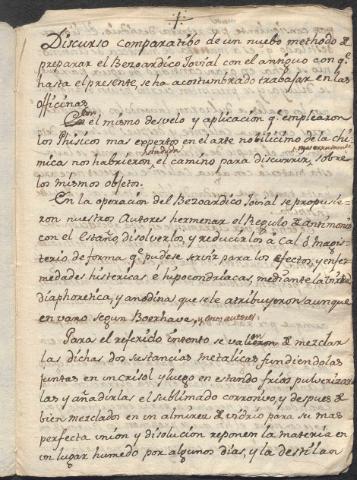 1.
Discurso comparatibo de un nuebo methodo de
preparar el Bezoardico Jovial con el antiguo con q.e
hasta el presente, se ha acostumbrado trabajar en las
officinas
Con el mismo desvelo y aplicacion q.e emplearon
los Phisicos mas expertos en el arte nobilicimo de la chi-
mica nos habrieron, el camino para discurrir, sobre
los mismos objetos.
En la operacion del Bezoardico Jovial se propusie-
ron nuestros Autores hermenar el Regulo de antimonio
con el Estaño, disolverlos, y reducirlos à Cal ò Magis-
terio de forma q.e pudese servir para los efectos, y enfer-
medades histericas è hipocondriacas, mediante la virtud
diaphoretica, y anodina que se le atribuyeron aunque
en vano segun Boerhave, y otros autores.
Para el referido intento se valieron de mezclar
las dichas dos sustancias metalicas fundiendolas
juntas en un crisol y luego en estando frias pulverizar
las y añadirlas el sublimado corrosivo, y despues de
bien mezclados en un almirez de vidrio para su mas
perfecta union y disolucion reponen la materia en
un lugar humedo por algunos dias, y la destilan